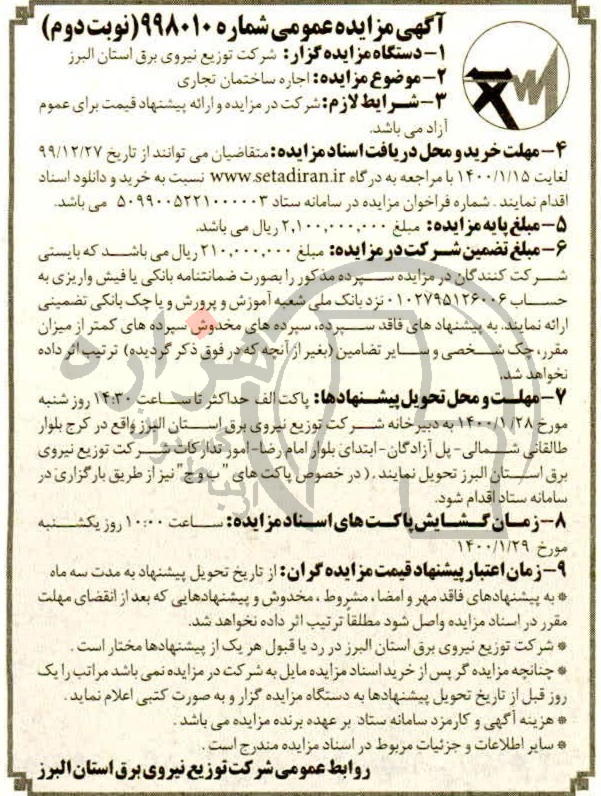 آگهی مزایده عمومی شماره ۹۹۸۰۱۰ (نوبت دوم)
۱- دستگاه مزایده گزار: شرکت توزیع نیروی برق استان البرز
۲- موضوع مزایده: اجاره ساختمان تجاری
۳- شرایط لازم: شرکت در مزایده و ارائه پیشنهاد قیمت برای عموم
آزاد می باشد.
۴- مهلت خرید و محل دریافت اسناد مزایده: متقاضیان می توانند از تاریخ ۹۹/۱۲/۲۷
لغایت ۱۴۰۰/۱/۱۵ با مراجعه به درگاه www.setadiran.ir نسبت به خرید و دانلود اسناد
اقدام نمایند. شماره فراخوان مزایده در سامانه ستاد ۵۰۹۹۰۰۵۲۲۱۰۰۰۰۰۳ می باشد.
۵- مبلغ پایه مزایده: مبلغ ۲,۱۰۰,۰۰۰,۰۰۰ ریال می باشد.
۶- مبلغ تضمین شرکت در مزایده: مبلغ ۲۱۰,۰۰۰,۰۰۰ ریال می باشد که بایستی
شرکت کنندگان در مزایده سپرده مذکور را بصورت ضمانتنامه بانکی یا فیش واریزی به
حساب ۰۱۰۲۷۹۵۱۲۶۰۰۶ نزد بانک ملی شعبه آموزش و پرورش و یا چک بانکی تضمینی
ارائه نمایند. به پیشنهاد های فاقد سپرده، سپرده های مخدوش سپرده های کمتر از میزان
مقرر، چک شخصی و سایر تضامین (بغیر از آنچه که در فوق ذکر گردیده) ترتیب اثر داده
نخواهد شد.
۷- مهلت و محل تحویل پیشنهادها: پاکت الف حداکثر تا ساعت ۱۴:۳۰ روز شنبه
مورخ ۱۴۰۰/۱/۲۸ به دبیرخانه شرکت توزیع نیروی برق استان البرز واقع در کرج بلوار
طالقانی شمالی- پل آزادگان- ابتدای بلوار امام رضا- امور تدارکات شرکت توزیع نیروی
برق استان البرز تحویل نمایند. ( در خصوص پاکت های "ب و ج" نیز از طریق بارگزاری در
سامانه ستاد اقدام شود.
۸- زمان گشایش پاکت های اسناد مزایده: ساعت ۱۰:۰۰ روز یکشنبه
مورخ ۱۴۰۰/۱/۲۹
۹- زمان اعتبار پیشنهاد قیمت مزایده گران: از تاریخ تحویل پیشنهاد به مدت سه ماه
* به پیشنهادهای فاقد مهر و امضا، مشروط، مخدوش و پیشنهادهایی که بعد از انقضای مهلت
مقرر در اسناد مزایده واصل شود مطلقاً ترتیب اثر داده نخواهد شد.
* شرکت توزیع نیروی برق استان البرز در رد یا قبول هر یک از پیشنهادها مختار است.
* چنانچه مزایده گر پس از خرید اسناد مزایده مایل به شرکت در مزایده نمی باشد مراتب را یک
روز قبل از تاریخ تحویل پیشنهادها به دستگاه مزایده گزار و به صورت کتبی اعلام نماید.
* هزینه آگهی و کارمزد سامانه ستاد بر عهده برنده مزایده می باشد.
* سایر اطلاعات و جزئیات مربوط در اسناد مزایده مندرج است.
روابط عمومی شرکت توزیع نیروی برق استان البرز
هزاره